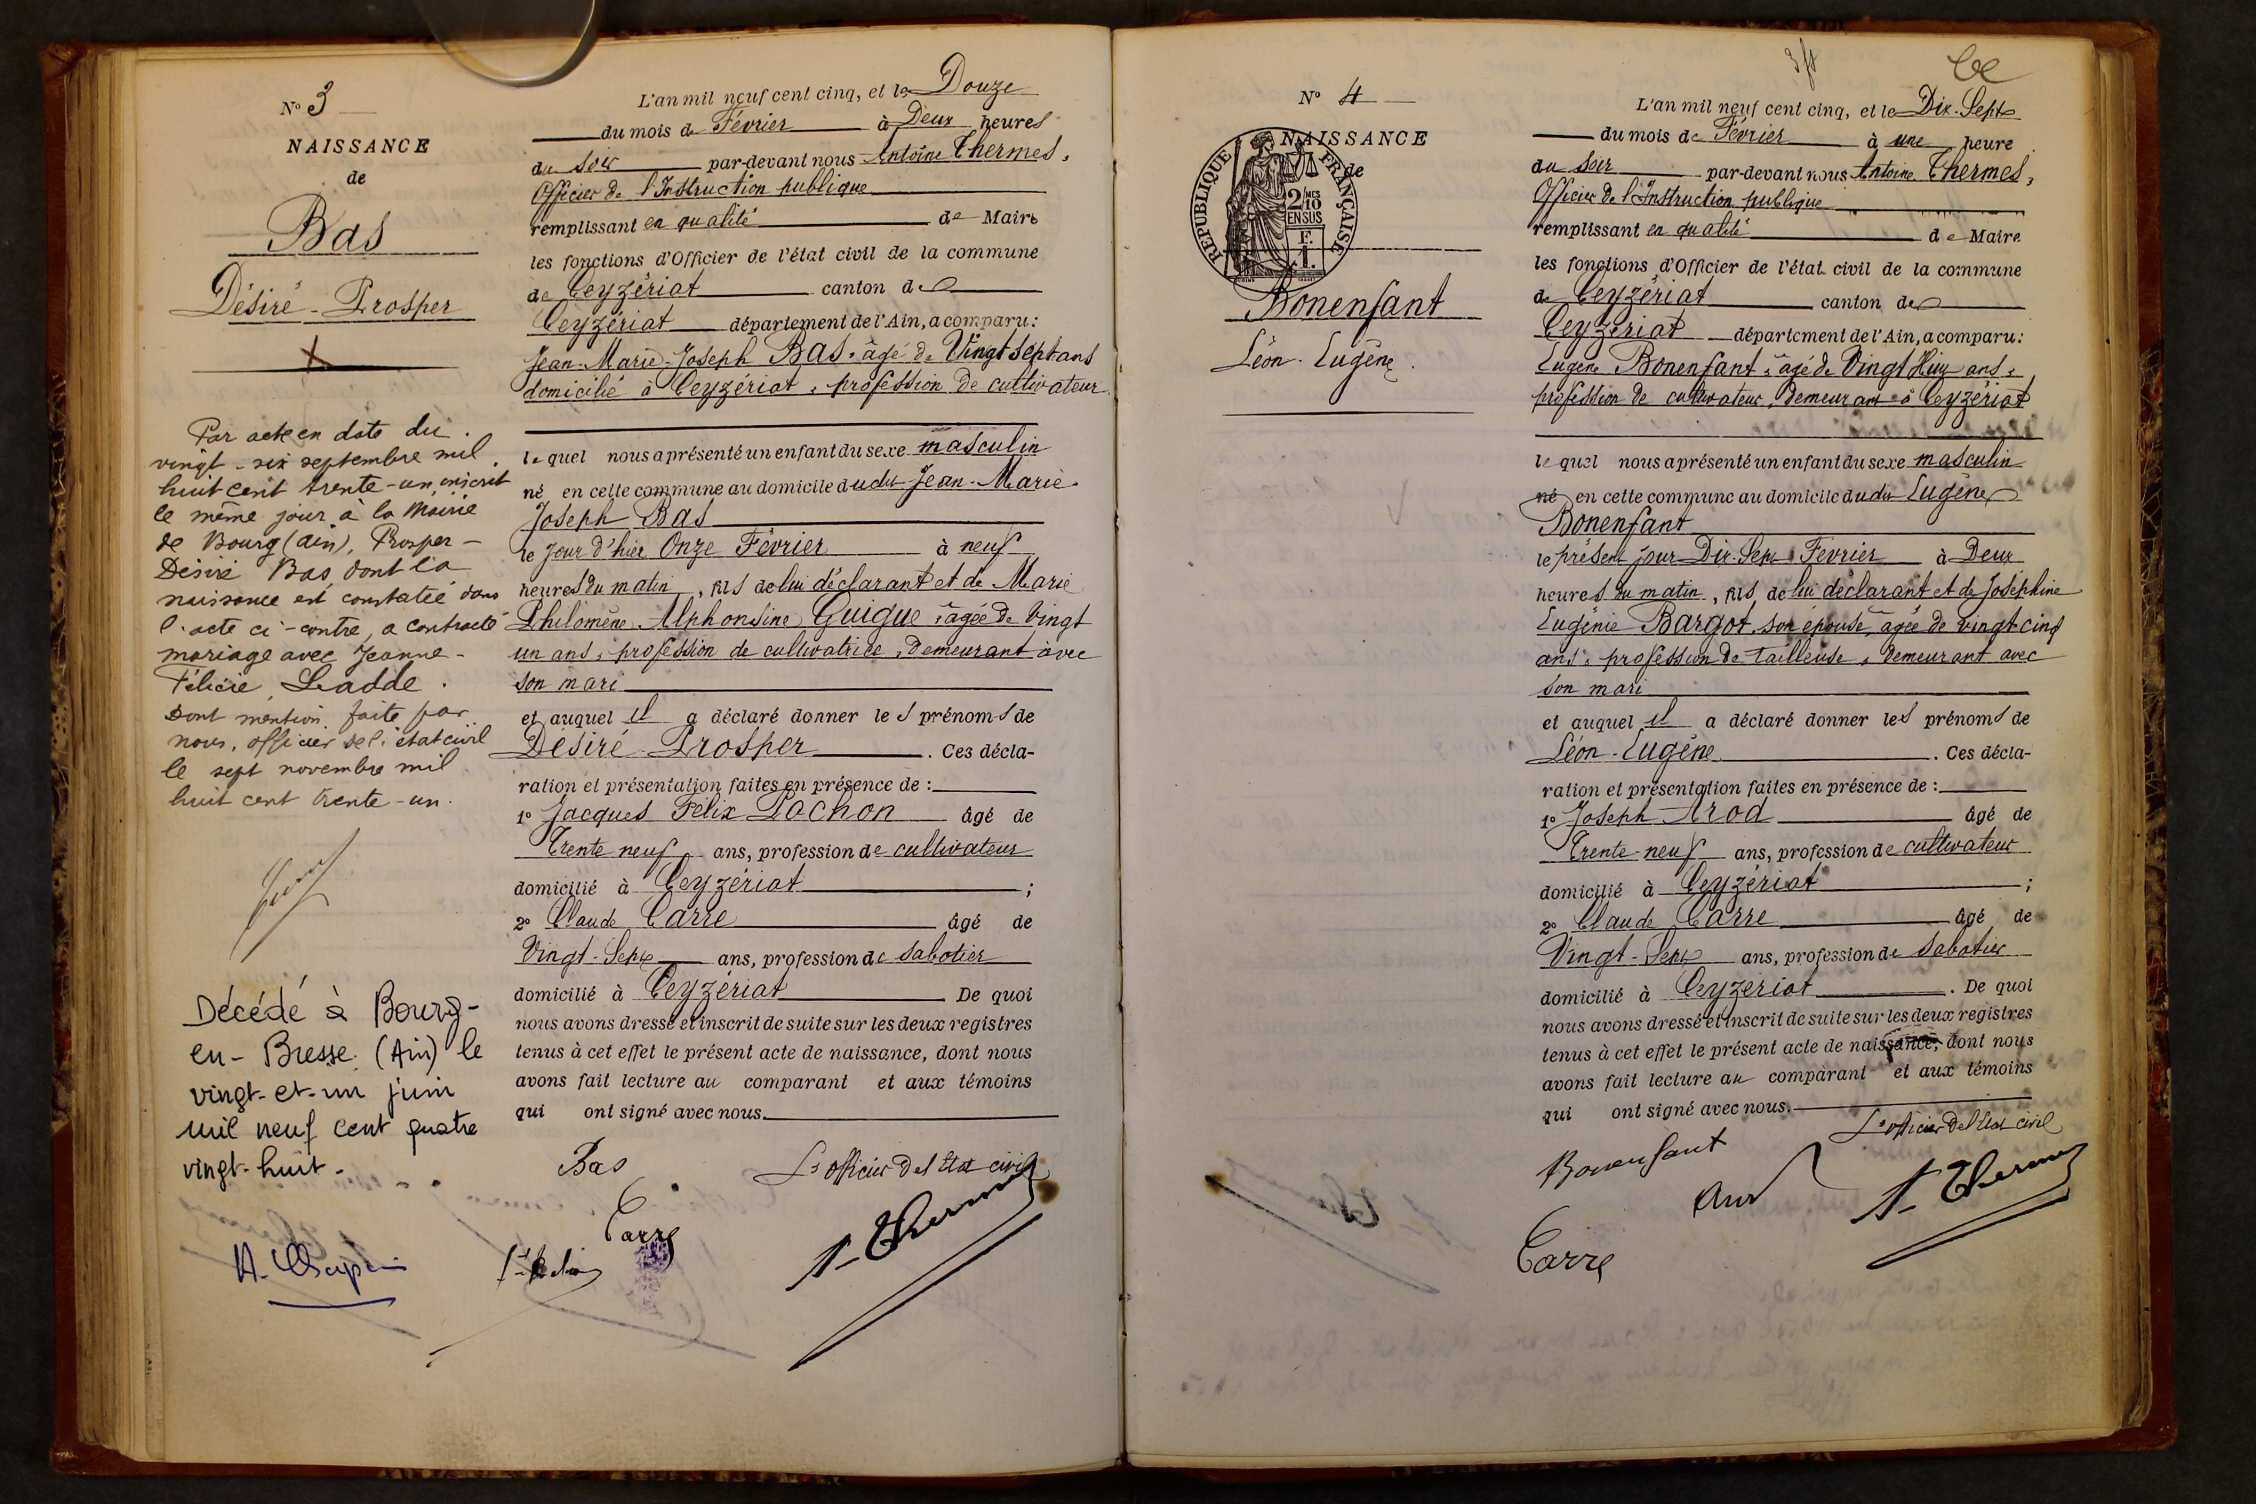 N° 3
NAISSANCE
de
Bas
Désiré - Prosper
Par acte en date du
vingt-six septembre mil
huit cent trente-un inscrit
le même jour à la Mairie
de Bourg (Ain), Prosper-
Désiré Bas, dont la
naissance est constatée dans
l'acte ci-contre, a contracté
mariage avec Jeanne-
Félicie Ladde.
Dont mention faite par
nous, officier de l'état civil
le sept novembre mil
huit cent trente-un.
Décédé à Bourg-
en-Bresse (Ain) le
vingt-et-un juin
mil neuf cent quatre
vingt-huit.
L'an mil neuf cent cinq, et le Douze
du mois de Février à Deux heures
du soir par-devant nous Antoine Thermes,
Officier de l'Instruction publique
remplissant en qualité de Maire
les fonctions d'Officier de l'état civil de la commune
de Ceyzériat canton de
Ceyzériat département de l'Ain, a comparu:
Jean-Marie-Joseph Bas, âgé de Vingt sept ans
domicilié à Ceyzériat, profession de cultivateur
lequel nous a présenté un enfant du sexe masculin
né en cette commune au domicile dudit Jean-Marie
Joseph Bas
le jour d'hier Onze Février à neuf
heures du matin, fils de lui déclarant et de Marie
Philomène Alphonsine Guigue, âgée de vingt
un ans, profession de cultivatrice, demeurant avec
son mari
et auquel il a déclaré donner les prénoms de
Désiré-Prosper. Ces décla-
ration et présentation faites en présence de:
1° Jacques Felix Pachon âgé de
Trente neuf ans, profession de cultivateur
domicilié à Ceyzériat;
2° Claude Carre âgé de
Vingt-Sept ans, profession de sabotier
domicilié à Ceyzériat De quoi
nous avons dressé et inscrit de suite sur les deux registres
tenus à cet effet le présent acte de naissance, dont nous
avons fait lecture au comparant et aux témoins
qui ont signé avec nous.
Bas
L'officier de l'Etat civil
Carre
A. Thermes
N° 4
NAISSANCE
de
REPUBLIQUE FRANÇAISE
2/10 MES
EN SUS
F.
1.
Bonenfant
Léon-Eugène.
L'an mil neuf cent cinq, et le Dix-Sept
du mois de Février à une heure
du soir par-devant nous Antoine Thermes,
Officier de l'Instruction publique
remplissant en qualité de Maire
les fonctions d'Officier de l'état civil de la commune
de Ceyzériat canton de
Ceyzériat département de l'Ain, a comparu:
Eugène Bonenfant, âgé de Vingt Huit ans,
profession de cultivateur, demeurant à Ceyzériat
lequel nous a présenté un enfant du sexe masculin
né en cette commune au domicile dudit Eugène
Bonenfant
le présent jour Dix-Sept Février à Deux
heures du matin, fils de lui déclarant et de Joséphine
Eugénie Bargot, son épouse, âgée de vingt cinq
ans, profession de Tailleuse, demeurant avec
son mari
et auquel il a déclaré donner les prénoms de
Léon-Eugène. Ces décla-
ration et présentation faites en présence de:
1° Joseph Arod âgé de
Trente-neuf ans, profession de cultivateur
domicilié à Ceyzériat;
2° Claude Carre âgé de
Vingt-Sept ans, profession de sabotier
domicilié à Ceyzériat. De quoi
nous avons dressé et inscrit de suite sur les deux registres
tenus à cet effet le présent acte de naissance, dont nous
avons fait lecture au comparant et aux témoins
qui ont signé avec nous.
L'officier de l'Etat civil
Bonenfant
A. Thermes
Carre